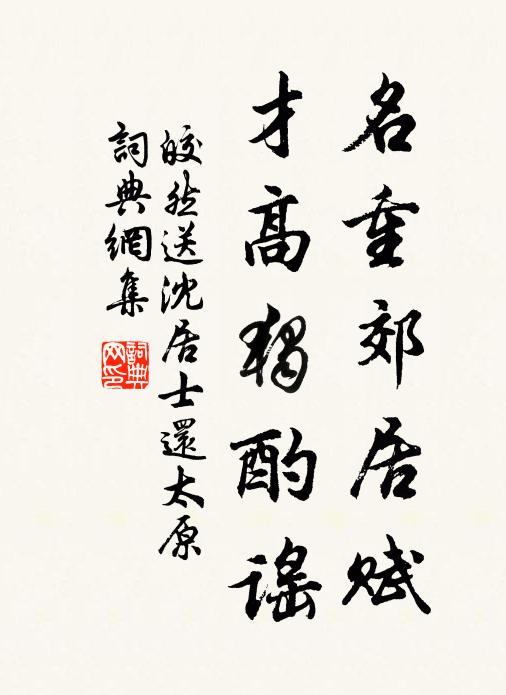 名重郊居赋
才高獨酌謠
皎然送沈居士還太原
詞典網集
詞典網印